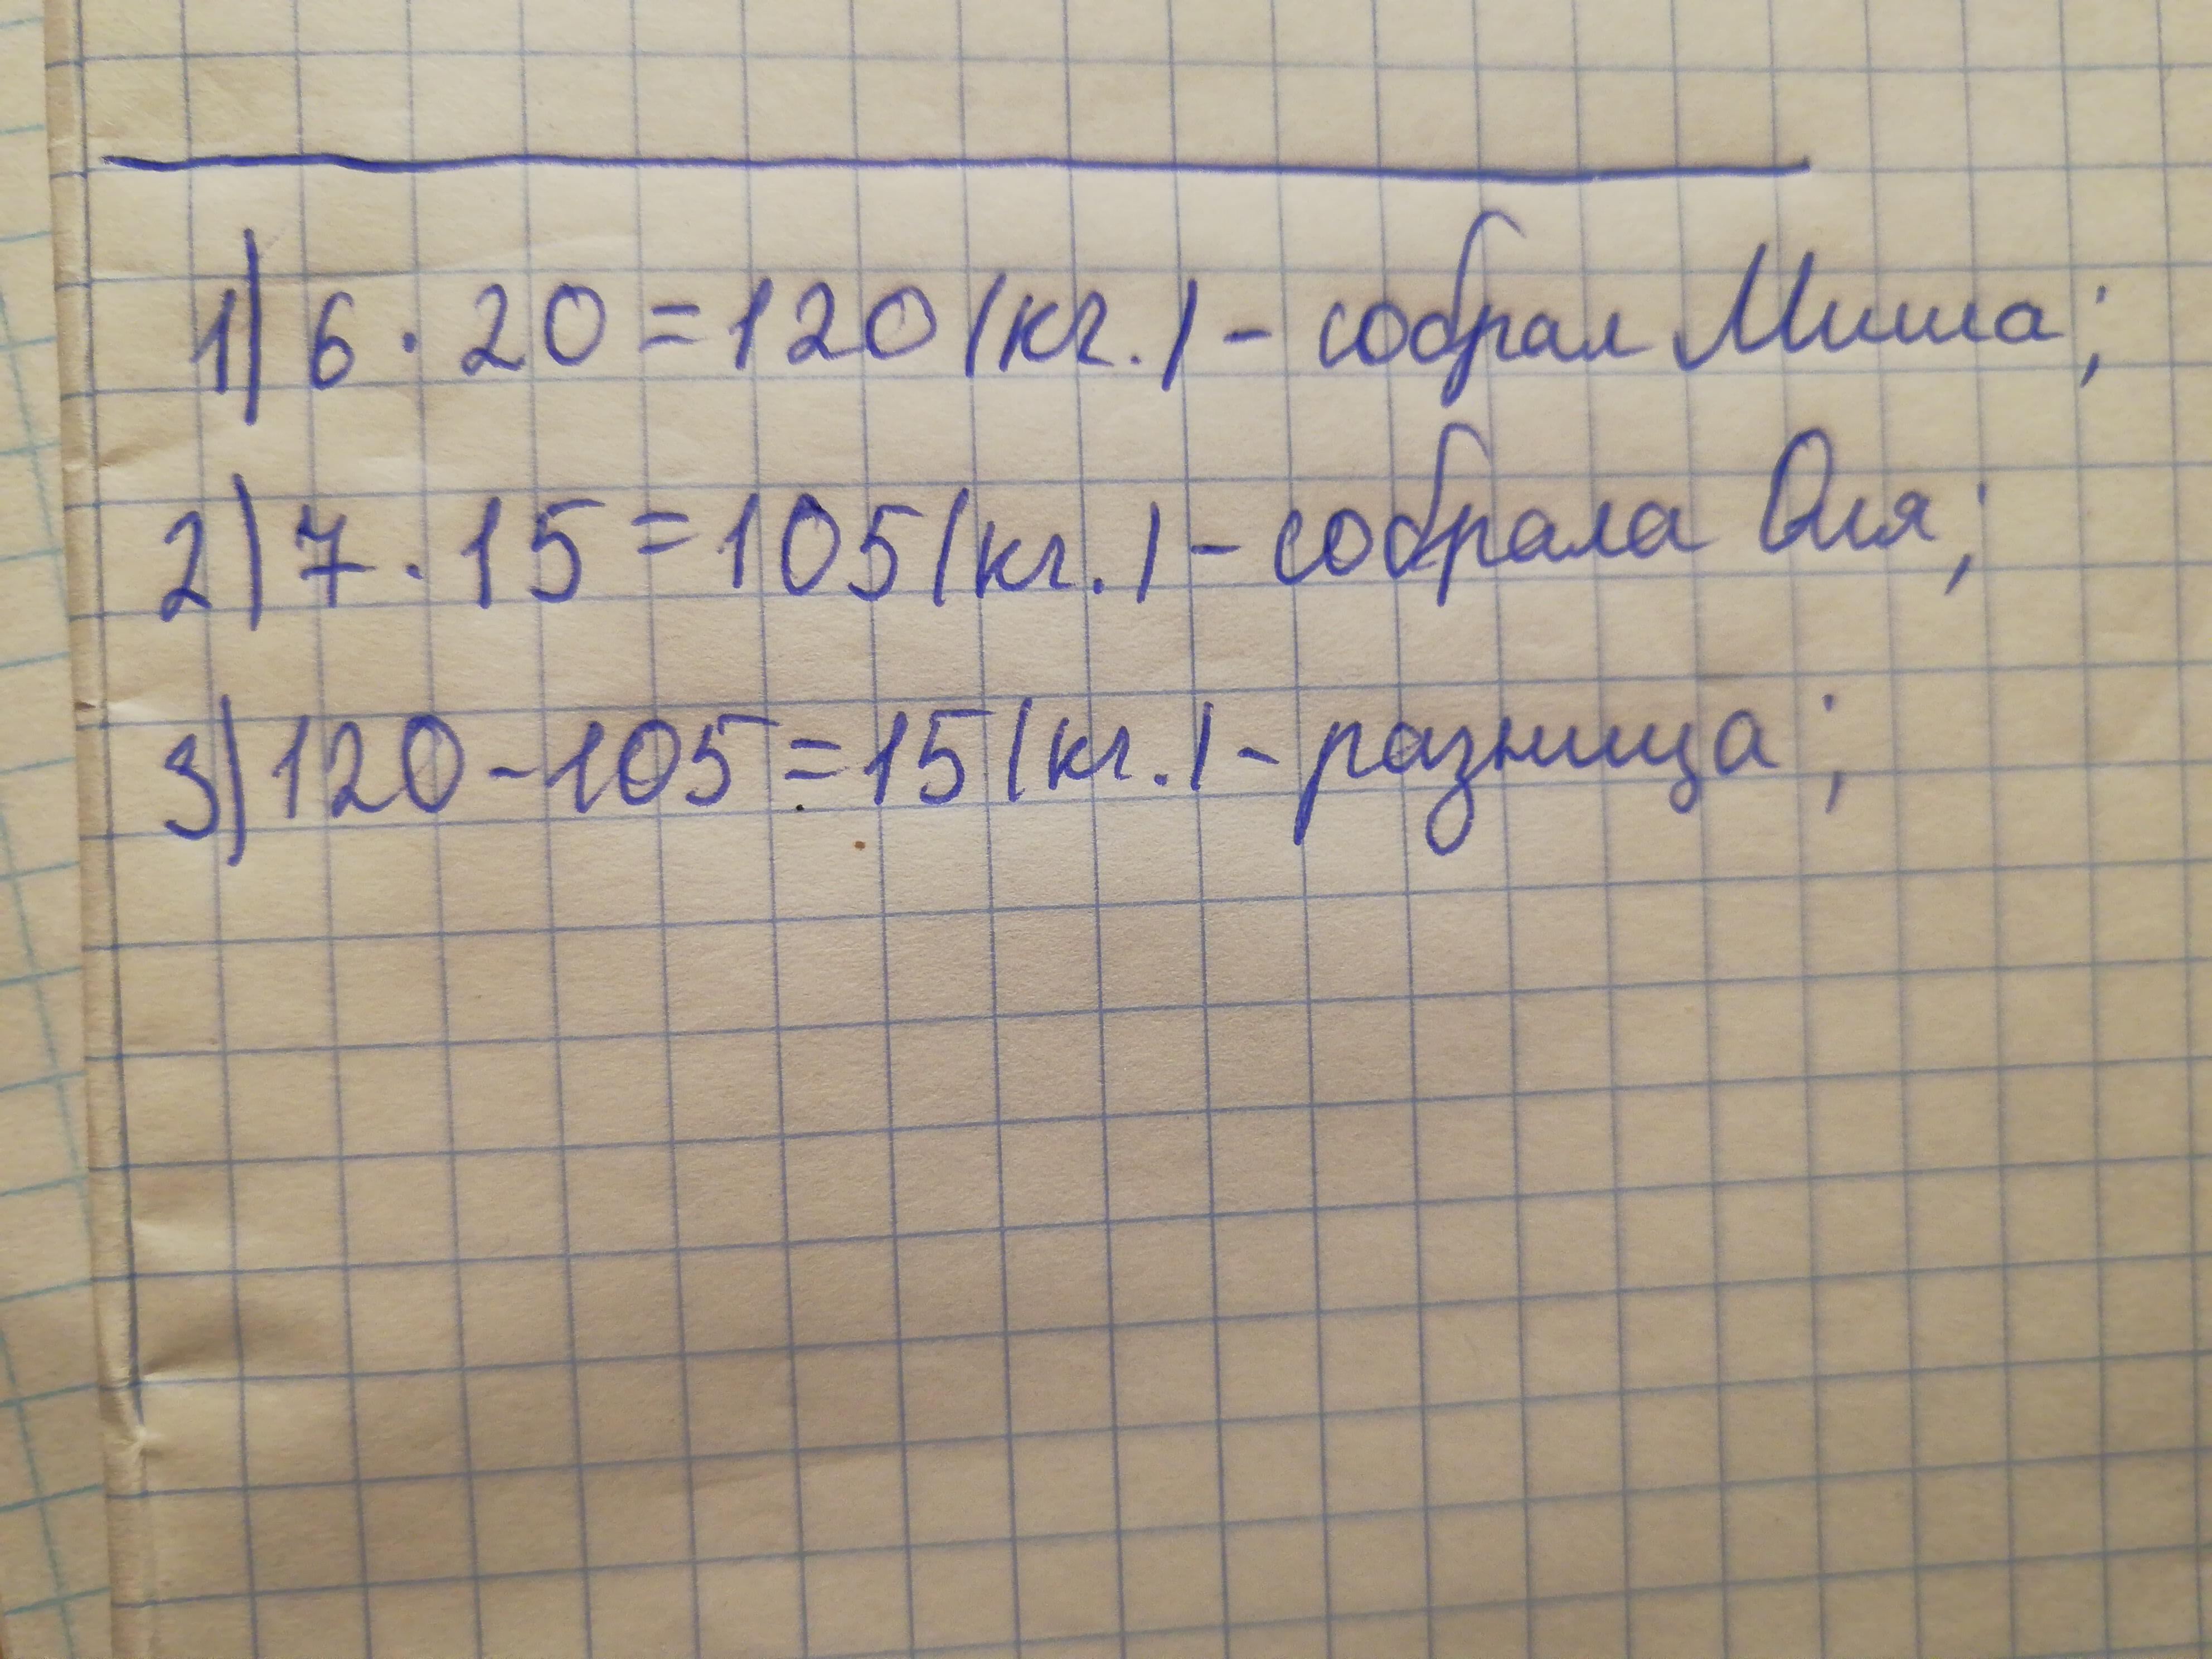 1) 6 · 20 = 120 (кг.) - собрал Миша;
2) 7 · 15 = 105 (кг.) - собрала Оля;
3) 120 - 105 = 15 (кг.) - разница;